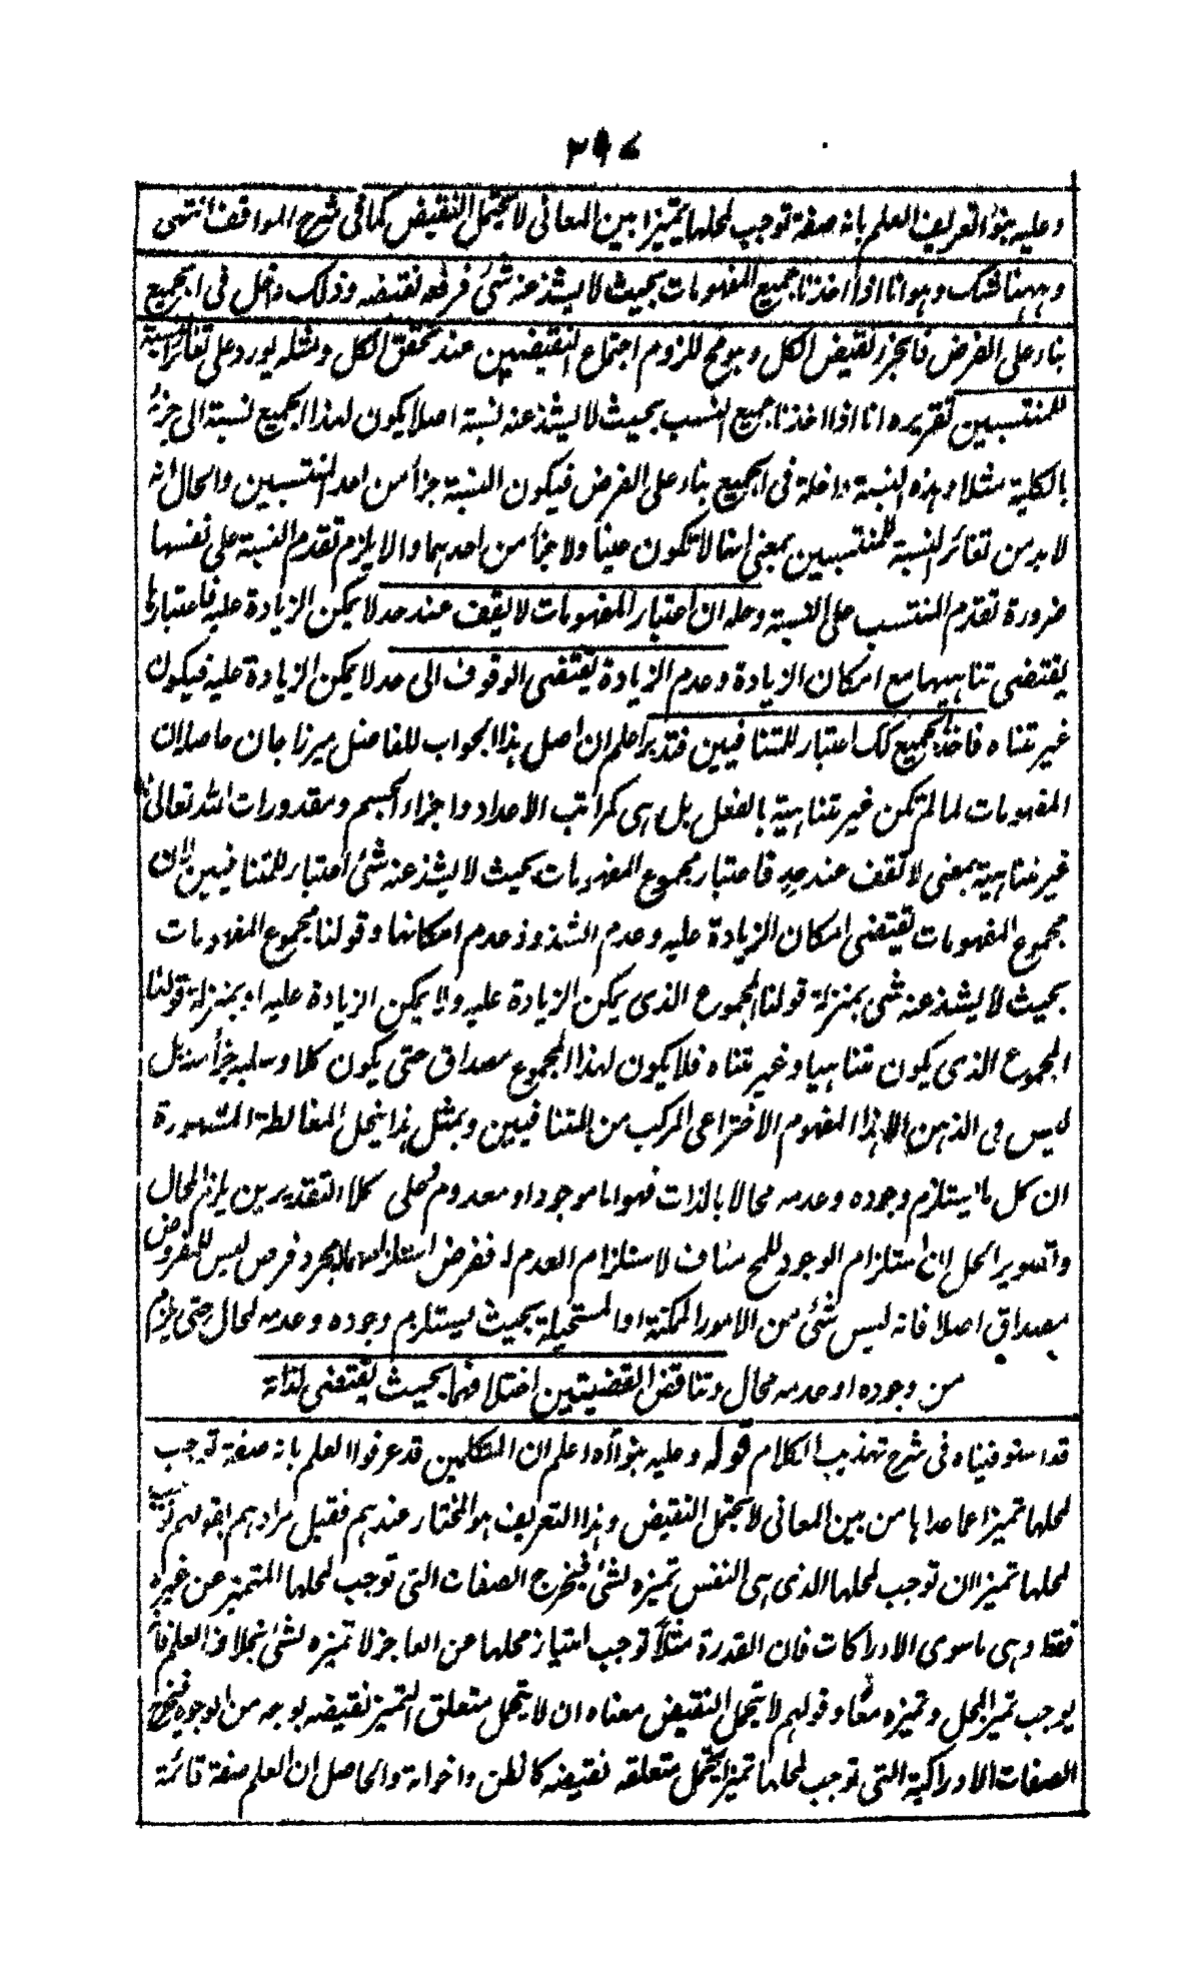 ٢٩٤
وعليه بنوا تعريف العلم بانه صفة توجب لمحلها تميزا بين المعانى لا يحتمل النقيض كما فى شرح المواقف انتهى
وههنا شك وهو انا اذا اخذنا جميع المفهومات بحيث لا يشذ عنه شئ فرفعه نقيضه وذلك داخل فى الجميع
بناء على الفرض فالجزء نقيض الكل وهو مح للزوم اجتماع النقيضين عند تحقق الكل ومثله يورد على تغائر النسبة
للمنتسبين تقريره انا اذا اخذنا جميع النسب بحيث لا يشذ عنه نسبة اصلا يكون لهذا الجميع نسبة الى جزئه
بالكلية مثلا وهذه النسبة داخلة فى الجميع بناء على الفرض فيكون النسبة جزأ من احد المنتسبين والحال انه
لا بد من تغائر النسبة للمنتسبين بمعنى انها لا تكون عينا ولا جزأ من احدهما والا يلزم تقدم النسبة على نفسها
ضرورة تقدم المنتسب على النسبة وحله ان اعتبار المفهومات لا يقف عند حد لا يمكن الزيادة عليه فاعتبارها
يقتضى تناهيها مع امكان الزيادة وعدم الزيادة يقتضى الوقوف الى حد لا يمكن الزيادة عليه فيكون
غير متناه فاخذ الجميع كك اعتبار للمتنافيين فتدبر اعلم ان اصل هذا الجواب للفاضل ميرزا جان حاصله ان
المفهومات لما لم تكن غير متناهية بالفعل بل هى كمراتب الاعداد واجزاء الجسم ومقدورات الله تعالى
غير متناهية بمعنى لا تقف عند حد فاعتبار مجموع المفهومات بحيث لا يشذ عنه شئ اعتبار للمتنافيين لان
مجموع المفهومات تقتضى امكان الزيادة عليه وعدم الشذوذ عدم امكانها وقولنا مجموع المفهومات
بحيث لا يشذ عنه شئ بمنزلة قولنا المجموع الذى يمكن الزيادة عليه ولا يمكن الزيادة عليه او بمنزلة قولنا
المجموع الذى يكون متناهيا وغير متناه فلا يكون لهذا المجموع مصداق حتى يكون كلا وسلبه جزأ منه بل
ليس فى الذهن الا هذا المفهوم الاختراعى المركب من المتنافيين وبمثل هذا ينحل المغالطة المشهورة
ان كل ما يستلزم وجوده وعدمه محالا بالذات فهو اما موجود او معدوم وعلى كلا التقديرين يلزم المحال
وتصوير الحل ان استلزام الوجود للمح مناف لاستلزام العدم له ففرض استلزامهما مجرد فرض ليس للمفروض
مصداق اصلا فانه ليس شئ من الامور الممكنة او المستحيلة بحيث يستلزم وجوده وعدمه لمحال حتى يلزم
من وجوده او عدمه محال وتناقض القضيتين اختلافهما بحيث يقتضى لذاته
قد استوفيناه فى شرح تهذيب الكلام قوله وعليه بنوا اه اعلم ان المتكلمين قد عرفوا العلم بانه صفة توجب
لمحلها تميزا عما عداها من بين المعانى لا يحتمل النقيض وهذا التعريف هو المختار عندهم فقيل مرادهم بقولهم توجب
لمحلها تميزا ان توجب لمحلها الذى هى النفس تميزه لشئ فيخرج الصفات التى توجب لمحلها التميز عن غيره
فقط وهى ما سوى الادراكات فان القدرة مثلا توجب امتياز محلها عن العاجز لا تميزه لشئ بخلاف العلم فانه
يوجب تميز المحل وتميزه معا وقولهم لا يحتمل النقيض معناه ان لا يحتمل متعلق التميز نقيضه بوجه من الوجوه فيخرج
الصفات الادراكية التى توجب لمحلها تميزا يحتمل متعلقه نقيضه كالظن واخواته والحاصل ان العلم صفة قائمة